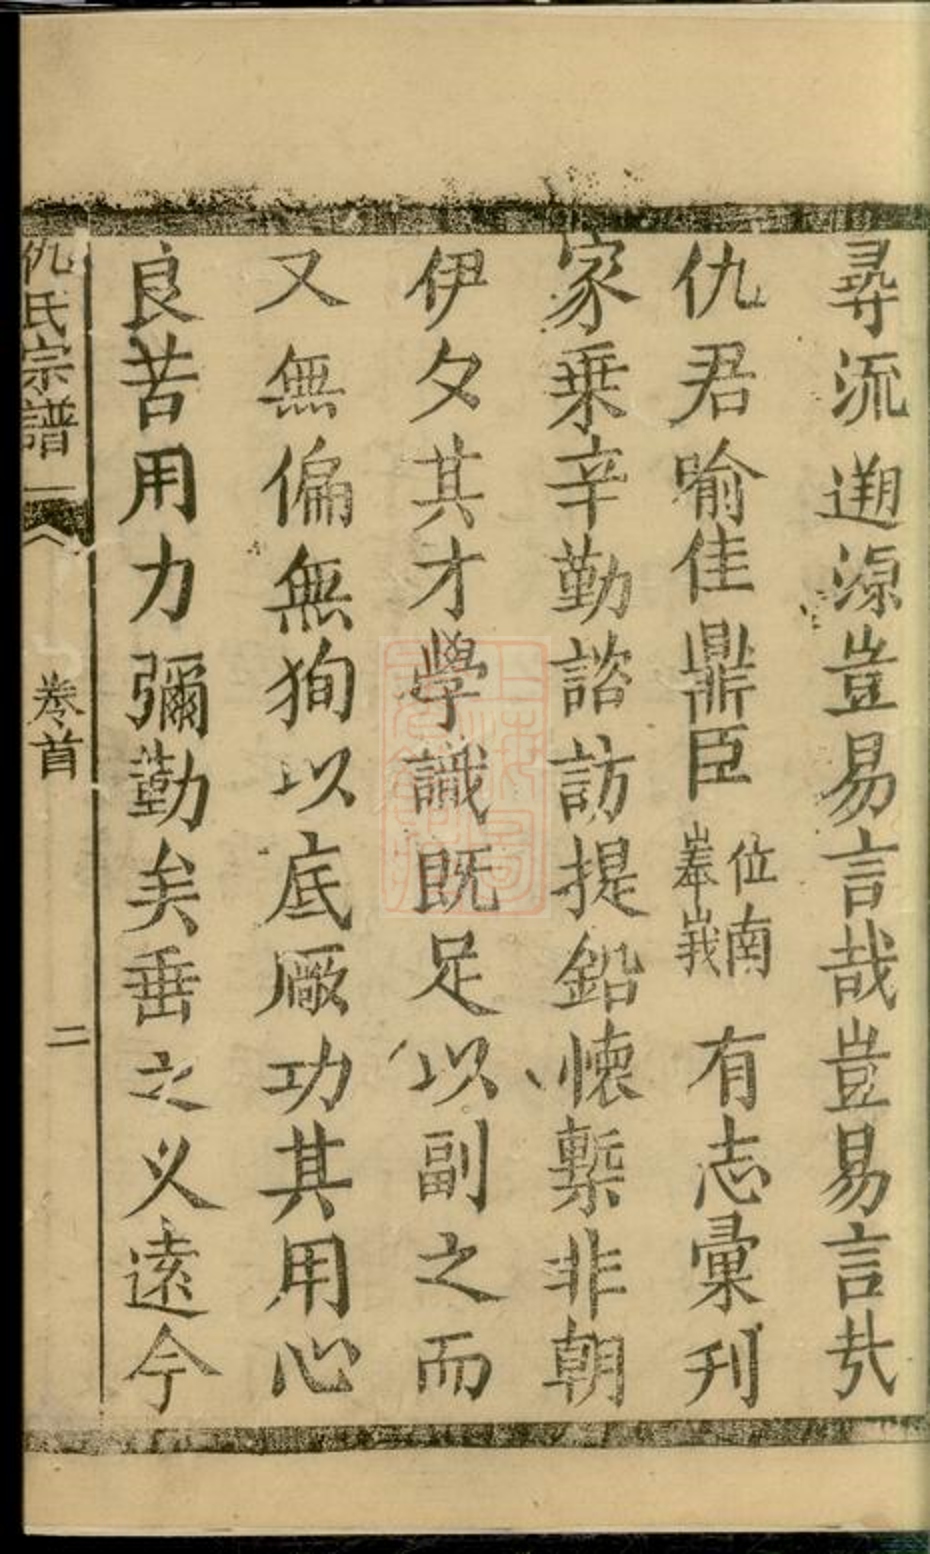 尋流遡源豈易言哉豈易言哉
仇君喻佳鼎臣位南峯峩有志彙刊
家乗辛勤諮訪提鉛懐槧非朝
伊夕其才學識既足以副之而
又無偏無狥以底厥功其用心
良苦用力彌勤矣垂之乂遠今
仇氏宗譜一 卷首 二